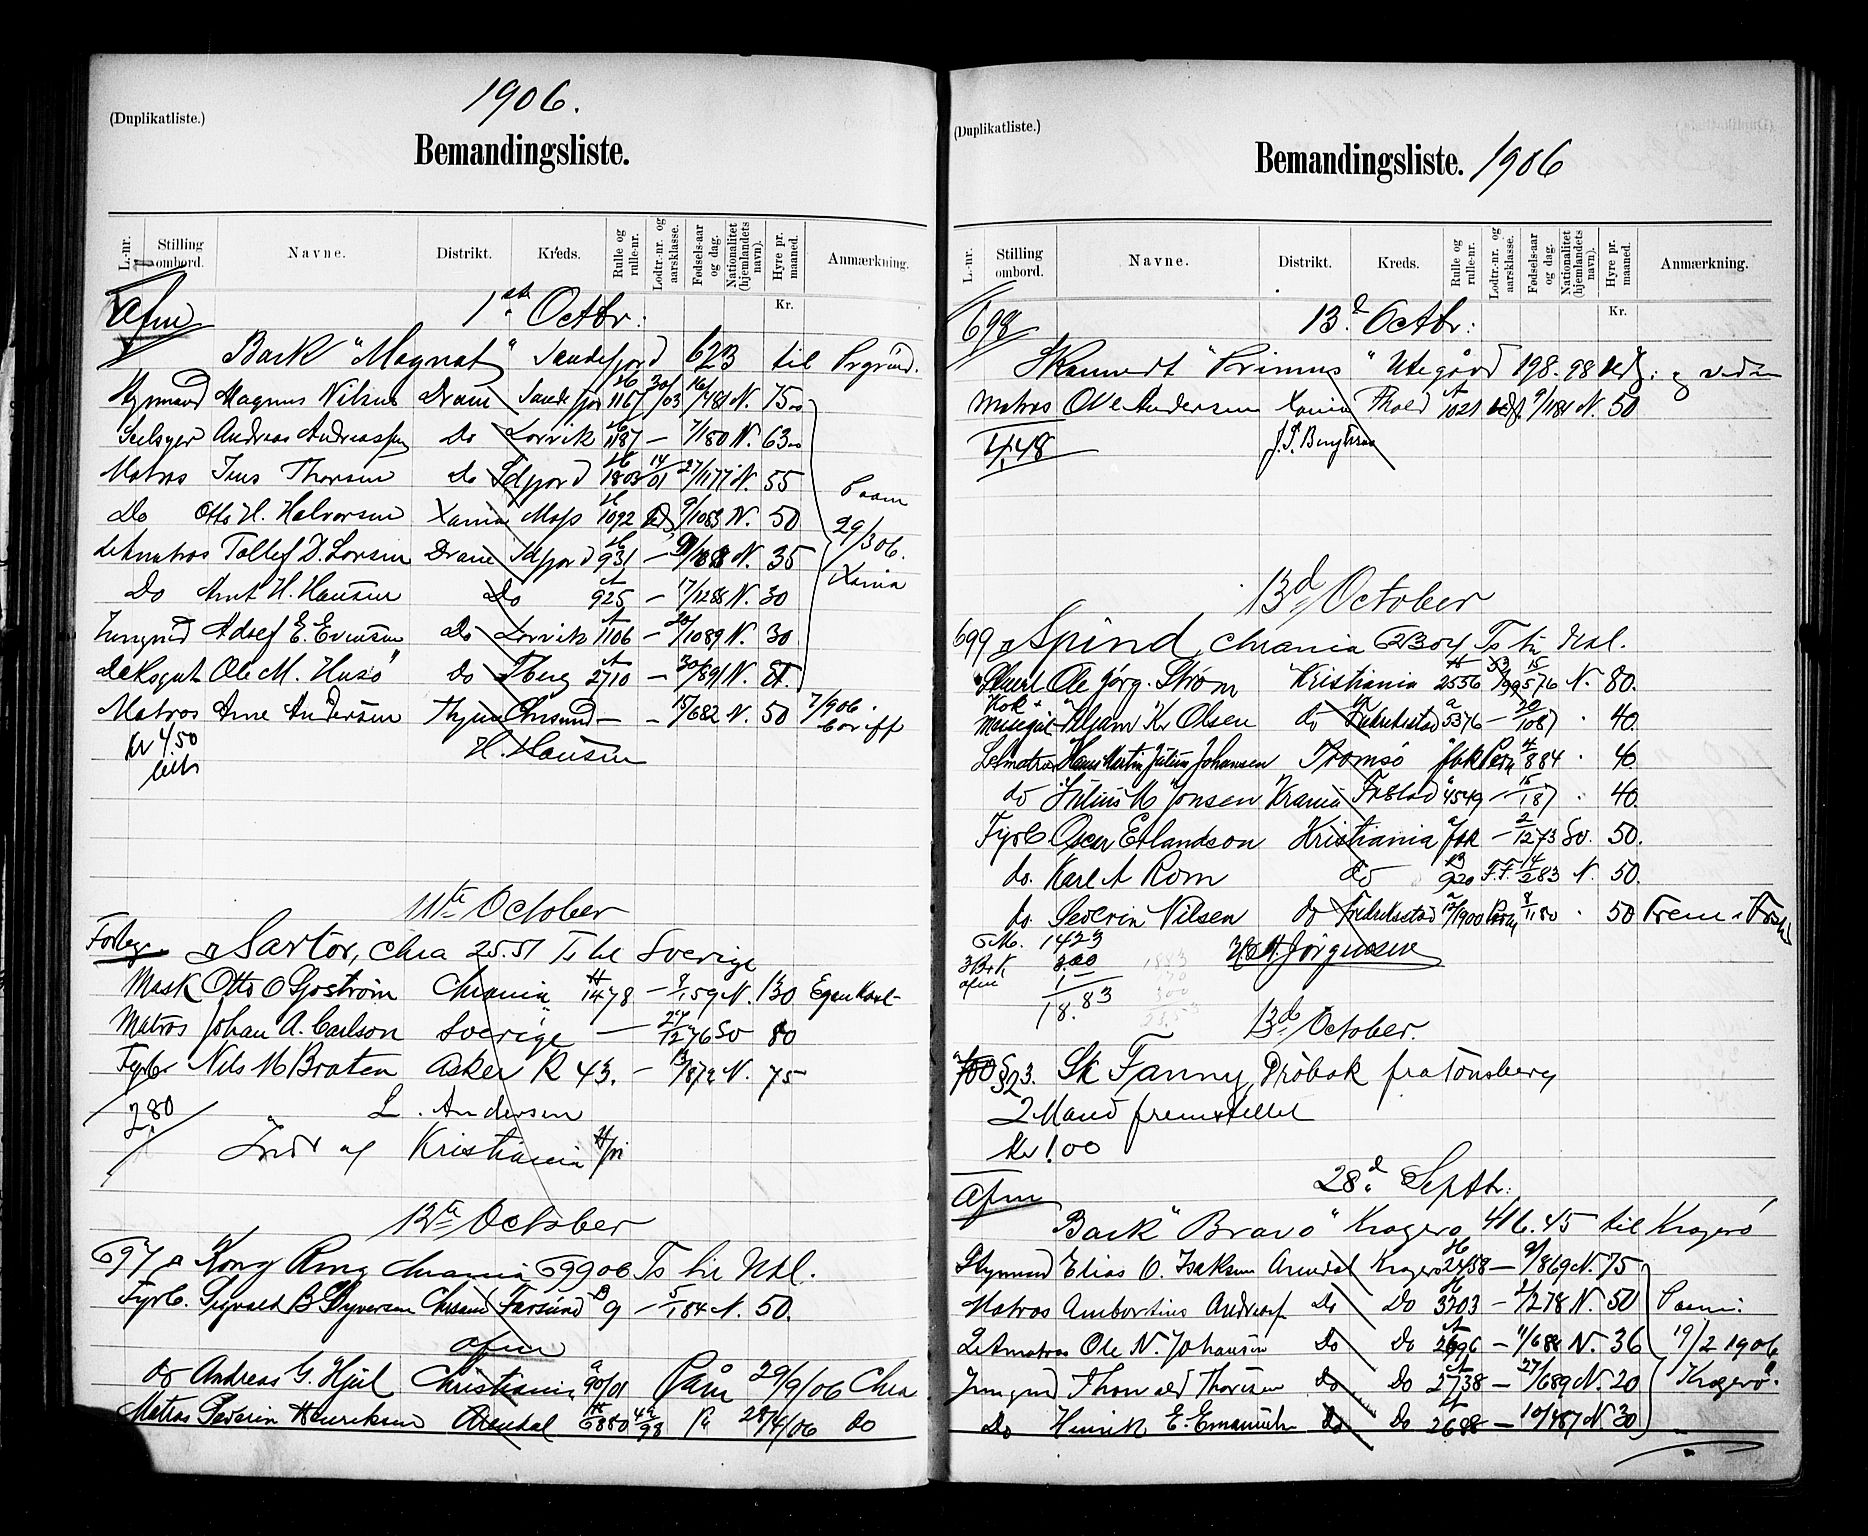 1906.
(Duplikatliste.)
Bemandingsliste.
L.-nr. Stilling ombord. Navne. Distrikt. Kreds. Rulle og rulle-nr. Lodtr.-nr. og aarsklasse. Fødsels-aar og dag. Nationalitet (hjemlandets navn). Hyre pr. maaned. Anmærkning.
Kr.
Afm 1ste Octbr:
Bark "Magnat" Sandefjord 623 til
Styrmand Magnus Nilsen Dram Sandefjor 1167 30/03 N. 75
Andreas Do Larvik 1187 — 7/180 N. 63
Matros Jens Thorsen do 1803 14/01 27/1177 N. 55
Do Otto H. Halvorsen Xania Moss 1092 9/1083 N. 50
Letmatros Tollef D. Larsen Dram 931 — N. 35
Do Arnt H. Hansen Do 925 — 17/1288 N. 30
Jungmd Adolf E. Evensen Do Larvik 1106 — 20/1089 N. 30
Ole M. Husö do Tberg 2710 — 30/891 N.
Paam 29/3 06. Xania
Matros Arne Andersen Chrsund — — 15/682 N. 50 7/906.
Kr 4.50
H. Hansen
11te October
Sartor, Chra 25.51 Ts til Sverige
Mask Otto O Gjoström Chrania 1478 — 8/159 N. 130 Egen Kaut
Matros Johan A. Carlson Sverige — 27/1276 So 80
Fyrb Nils M Braten Asker R 43. — 13/872 N. 75
2.80
L. Andersen
Indr af Kristiania
12te October
697 Kong Ring Chrania 69906 Ts til Utl.
Fyrb. Sigvald B Styversen Chrsand Farsund B 9 — 5/184 N. 50.
afm
do Andreas G. Hjul Christiania 90/01 Påm 29/9/06 Chra
Matros Severin Henriksen Arendal 6880 42/98 På 28/4/06 do
(Duplikatliste.)
Bemandingsliste. 1906
L.-nr. Stilling ombord. Navne. Distrikt. Kreds. Rulle og rulle-nr. Lodtr.-nr. og aarsklasse. Fødsels-aar og dag. Nationalitet (hjemlandets navn). Hyre pr. maaned. Anmærkning.
Kr.
698 13d Octbr:
Skonnert "Primus" Utegård 198.98 ved
Matros Ole Andersen Xania 1021 9/1181 N. 50
4.48
13d October
699 Spind, Chrania 62304 Ts til Utl.
Stuert Ole Jörg. Ström Kristiania 2556 15/576 N. 80.
Kok + Kr Olsen do Fredrikstad 5376 — 20/1087 · 40.
Letmatros Hans Martin Julius Johansen Tromsö 4/884 · 40
do Julius M Jonsen Krania Frstad 4549 — 15/187 · 40.
Fyrb Oscar Erlandson Kristiania — 2/1273 So. 50.
do. Karl A Rom do 920 F.F. 14/283 N. 50.
do. Severin Nilsen do Fredrikstad 12/1900 8/1180 · 50 Frem i
6 M. 1423
3 B+K 3.60
afm 1
18.83
H. Jörgensen
13de October.
700 §23. Sk Fanny, Dröbak fra Tönsberg
2 Mand fremstillet
Kr 1.00
Afm 28d Septbr:
Bark "Bravo" Kragerø 416.45 til Kragerö
Styrmand Elias O. Isaksen Arendal Kragerö 2458 — 9/869 N. 75
Matros Do Do 3203 — 2/278 N. 50
Letmatros Ole N. Johansen Do Do 2696 — 11/688 N. 36
Jungmd Thorvald Thorsen Do Do 2738 — 27/689 N. 20
Do Henrik E. Emanuels Do Do 2688 — 10/487 N. 30
Paam: 19/2 1906 Kragerö.